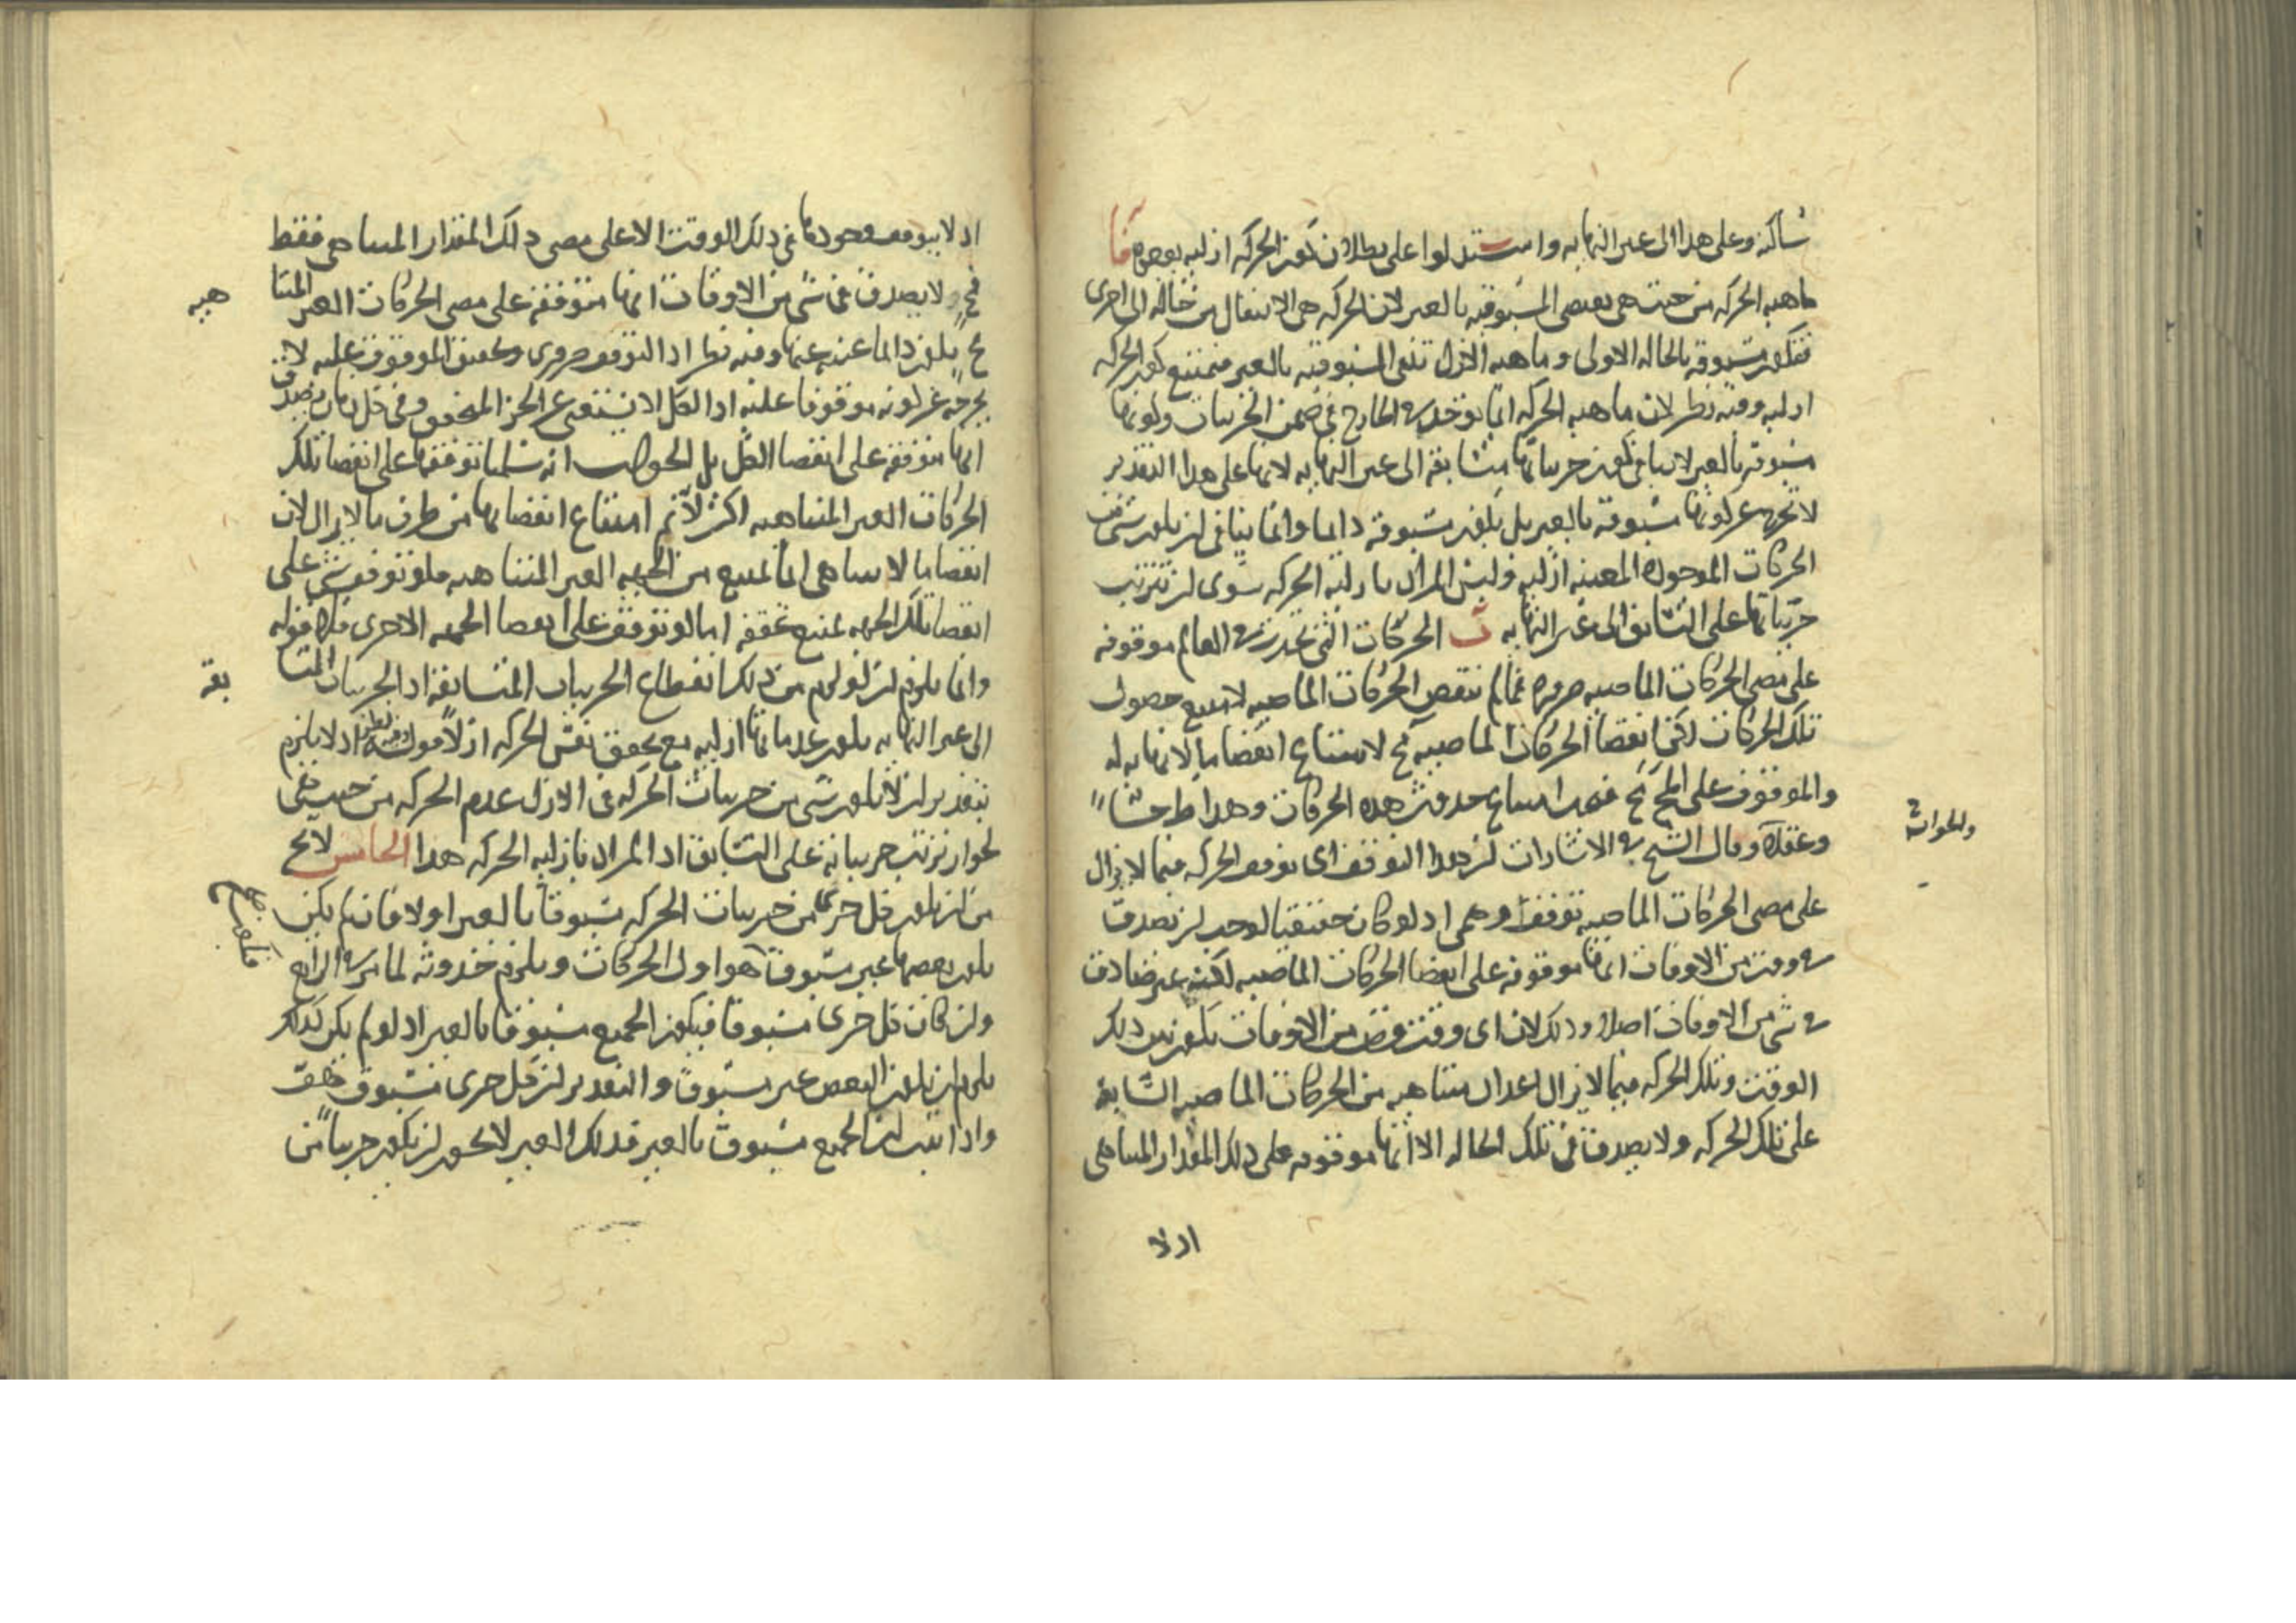 ساكنة وعلى هذا الى غير النهاية واستدلوا على بطلان كون الحركة ازلية بوجوه آ
ماهية الحركة من حيث هى تقتضى المسبوقية بالغير لان الحركة هى الانتقال من حالة الى اخرى
فتكون مسبوقة بالحالة الاولى وماهية الازل تنفى المسبوقية بالغير فيمتنع كون الحركة
ازلية وفيه نظر لان ماهية الحركة انما توخذ فى الخارج فى ضمن الجزييات وكونها
مسبوقة بالغير لا ينافى كون جزياتها متسابقة الى غير النهاية لانها على هذا التقدير
لا تخرج عن كونها مسبوقة بالغير بل تكون مسبوقة دايما وانما ينافى ان يكون شى من
الحركات الموجودة المعينة ازلية وليس المراد بازلية الحركة سوى ان تترتب
جزياتها على التسابق الى غير النهاية ب الحركات التى تحدث فى العالم موقوفة
على مضى الحركات الماضية ضرورة فما لم تنقض الحركات الماضية لامتنع حصول
تلك الحركات لكن انقضا الحركات الماضية مح لامتناع انقضا ما لا نهاية له
والموقوف على المح مح فيمتنع حدوث هذه الحركات وهذا ط حسا
وعقلا وقال الشيخ فى الاشارات ان هذا التوقف اى توقف الحركة فيما لا يزال
والحوادث
على مضى الحركات الماضية توقف وهمى اذ لو كان حقيقيا لوجب ان تصدق
فى وقت من الاوقات انها موقوفة على انقضا الحركات الماضية لكنه غير صادق
فى شى من الاوقات اصلا وذلك لان اى وقت فرض من الاوقات يكون بين ذلك
الوقت وتلك الحركة فيما لا يزال اعداد متناهية من الحركات الماضية السابقة
على تلك الحركة ولا يصدق فى تلك الحالة الا انها موقوفة على ذلك المقدار المتناهى
اذ لا
اذ لا يتوقف وجودها فى ذلك الوقت الا على مضى ذلك المقدار المتناهى فقط
فح ولا يصدق فى شى من الاوقات انها متوقفة على مضى الحركات الغير المتنا
هية
دايما وفيه نظر اذ التوقف ضرورى وتحقق الموقوف عليه لا
يخرجه عن كونه موقوفا عليه اذ الكل لا يستغنى عن الجز المتحقق وفى كل زمان يصدق
انها متوقفة على انقضا الكل بل الجواب انه سلمنا توقفها على انقضا تلك
الحركات الغير المتناهية لكن لا نم امتناع انقضايها من طرف ما لا يزال لان
انقضا ما لا يتناهى انما يمتنع من الجهة الغير المتناهية فلو توقف شى على
انقضا تلك الجهة يمتنع تحققه اما لو توقف على انقضا الجهة الاخرى فلا قوله
وانما يلزم ان لو لزم من ذلك انقطاع الجزييات المتسابقة اذ الجزييات المتسا
بقة
الى غير النهاية يكون عدماتها ازلية مع تحقق نفس الحركة ازلا قوله وفيه نظر اذ لا يلزم
بتقدير ان لا يكون شى من جزييات الحركة فى الازل عدم الحركة من حيث هى
لجواز ترتب جزيياته على التسابق اذ المراد بازلية الحركة هذا الخامس لا يخ
من ان يكون كل جزء من جزييات الحركة مسبوقا بالغير او لا فان لم يكن
يكون بعضها غير مسبوق هو اول الحركات ويلزم حدوثه لما مر فى الرابع
وان كان كل جزى مسبوقا فيكون الجميع مسبوقا بالغير اذ لو لم يكن كذلك
يلزم ان يكون البعض غير مسبوق والتقدير ان كل جزى مسبوق هف
واذا ثبت ان الجميع مسبوق بالغير فذلك الغير لا يجوز ان يكون جزييا من